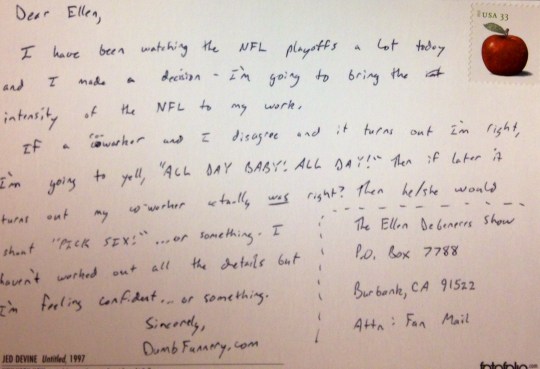 Dear Ellen,
I have been watching the NFL playoffs a lot today
and I made a decision - I'm going to bring the
intensity of the NFL to my work.
If a coworker and I disagree and it turns out I'm right,
I'm going to yell, "ALL DAY BABY! ALL DAY!" Then if later it
turns out my co-worker actually was right? Then he/she would
shout "PICK SIX!" ...or something. I
haven't worked out all the details but
I'm feeling confident... or something.
Sincerely,
DumbFunnery.com
The Ellen DeGeneres Show
P.O. Box 7788
Burbank, CA 91522
Attn: Fan Mail
USA 33
JED DEVINE Untitled, 1997
fotofolio